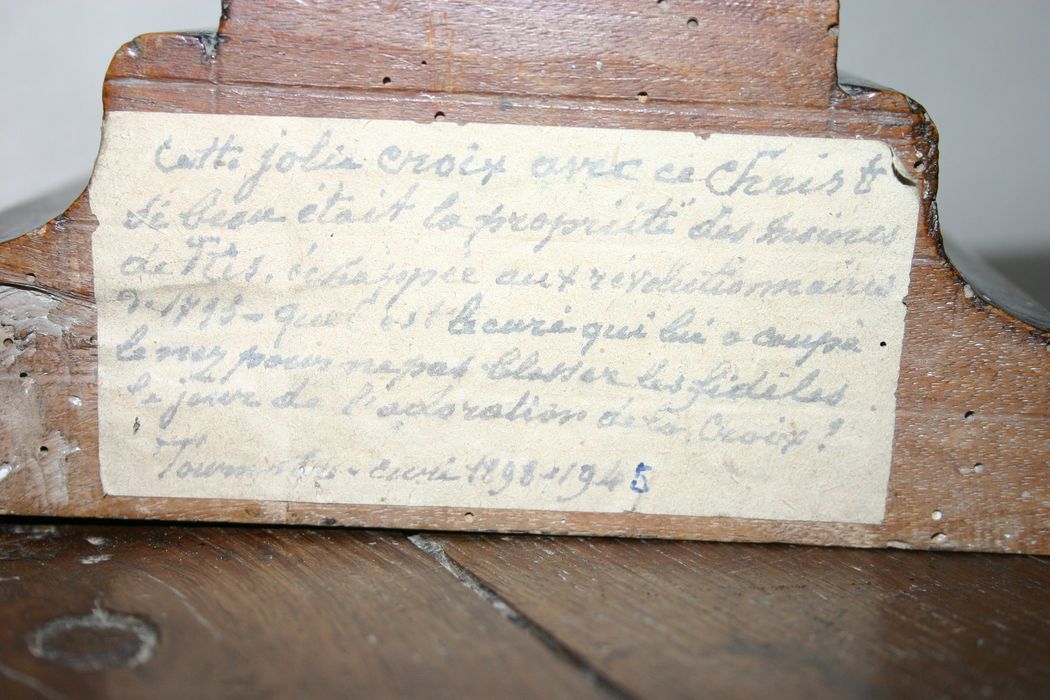 Cette jolie croix avec ce Christ
si beau était la propriété des moines
de échappée aux révolutionnaires
de 1795 - quel est le curé qui lui a coupé
le nez pour ne pas blesser les fidèles
le jour de l'adoration de la Croix!
curé 1898-1945